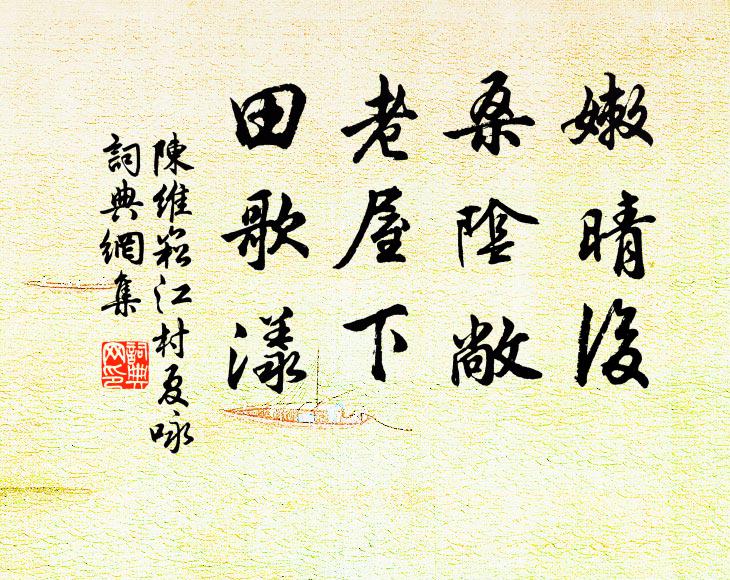 嫩晴後
桑陰敞
老屋下
田歌漾
陳維崧江村夏咏
詞典網集
詞典網印